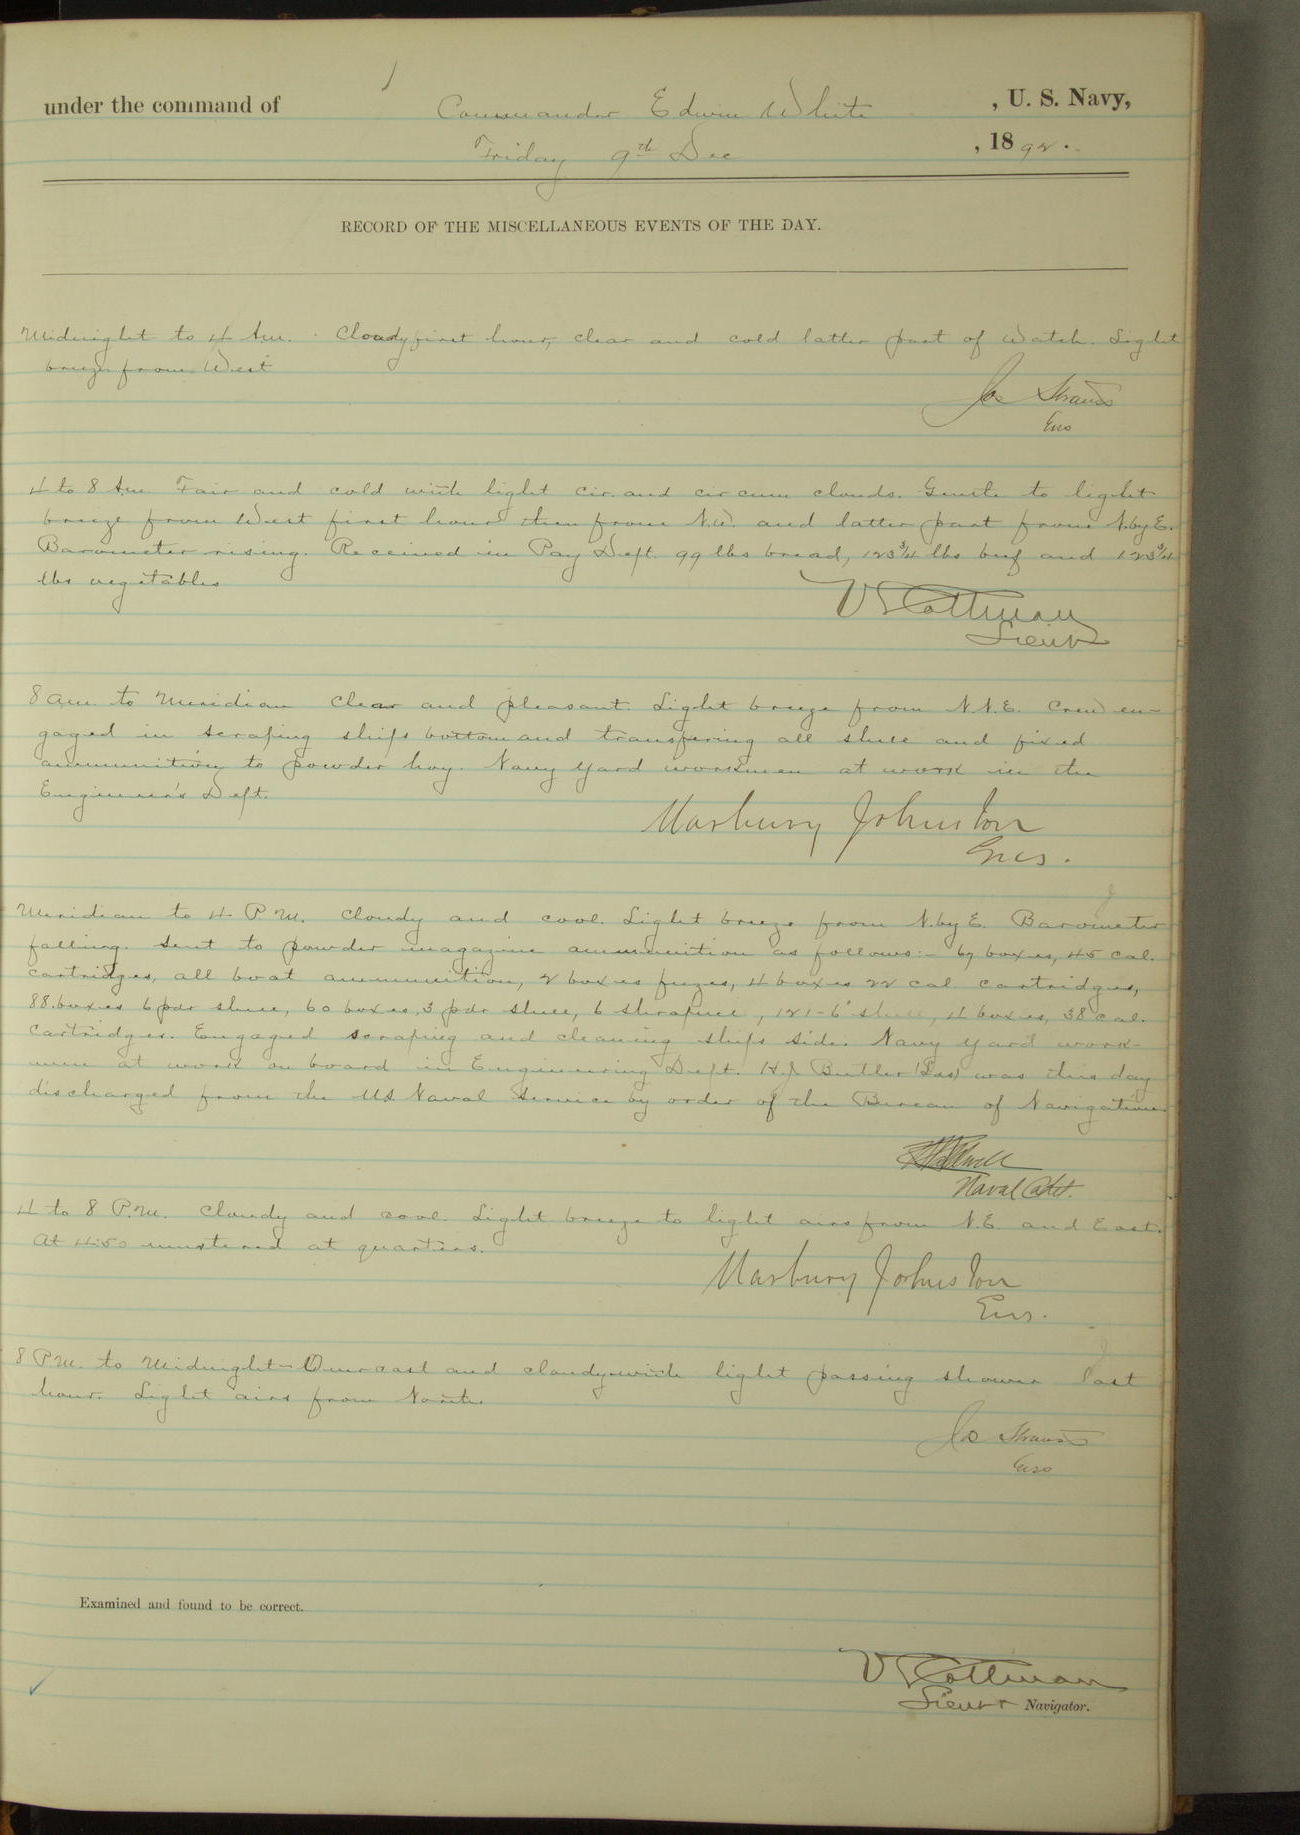 under the command of Commander Edwin White, U. S. Navy,
Friday 9th Dec, 1892.
RECORD OF THE MISCELLANEOUS EVENTS OF THE DAY.
Midnight to 4 Am. Cloudy first hour, clear and cold latter part of Watch. Light
breeze from West
Jos Strauss
Ens
4 to 8 Am Fair and cold with light cir. and cir cum clouds. Gentle to light
breeze from West first hour then from N.W. and latter part from N.by E.
Barometer rising. Received in Pay Dept. 99 lbs bread, 123 3/4 lbs beef and 123 3/4
lbs vegetables
V S Cottman
Lieut
8 am. to Meridian Clear and pleasant. Light breeze from N.N.E. Crew en-
gaged in scraping ships bottom and transfering all shell and fixed
ammunition to powder hoy. Navy Yard workmen at work in the
Engineer's Dept.
Marbury Johnston
Ens.
Meridian to 4 P.M. Cloudy and cool. Light breeze from N.by E. Barometer
falling. Sent to powder magazine ammunition as follows:- 67 boxes, 45 cal.
cartridges, all boat ammunition, 2 boxes fuzes, 4 boxes 22 cal cartridges,
88 boxes 6 pdr shell, 60 boxes, 3 pdr shell, 6 shrapnel, 121-6" shell, 4 boxes, 38 cal.
Cartridges. Engaged scraping and cleaning ships side. Navy Yard work-
men at work on board in Engineering Dept. H.J. Butler (Lds) was this day
discharged from the U.S. Naval Service by order of the Bureau of Navigation
Naval Cadt.
4 to 8 P.M. Cloudy and cool. Light breeze to light airs from N.E. and East.
At 4:50 mustered at quarters.
Marbury Johnston
Ens.
8 P.M. to Midnight - Overcast and cloudy with light passing shower last
hour. Light airs from North.
Jos Strauss
Ens
Examined and found to be correct.
V S Cottman
Lieut Navigator.